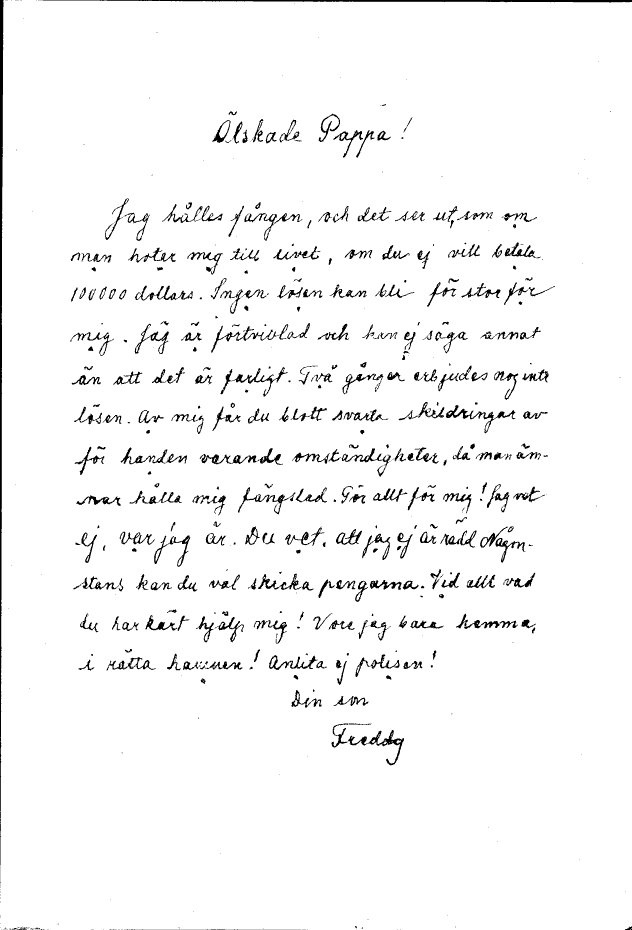 Älskade Pappa!
Jag hålles fången, och det ser ut, som om
man hotar mig till livet, om du ej vill betala
100000 dollars. Ingen lösen kan bli för stor för
mig. Jag är förtvivlad och kan ej säga annat
än att det är farligt. Två gånger erbjudes nog inte
lösen. Av mig får du blott svarta skildringar av
för handen varande omständigheter, då man äm-
nar hålla mig fängslad. Gör allt för mig! Jag vet
ej, var jag är. Du vet, att jag ej är rädd Någon-
stans kan du väl skicka pengarna. Vid allt vad
du har kärt hjälp mig! Vore jag bara hemma,
i rätta hamnen! Anlita ej polisen!
Din son
Freddy